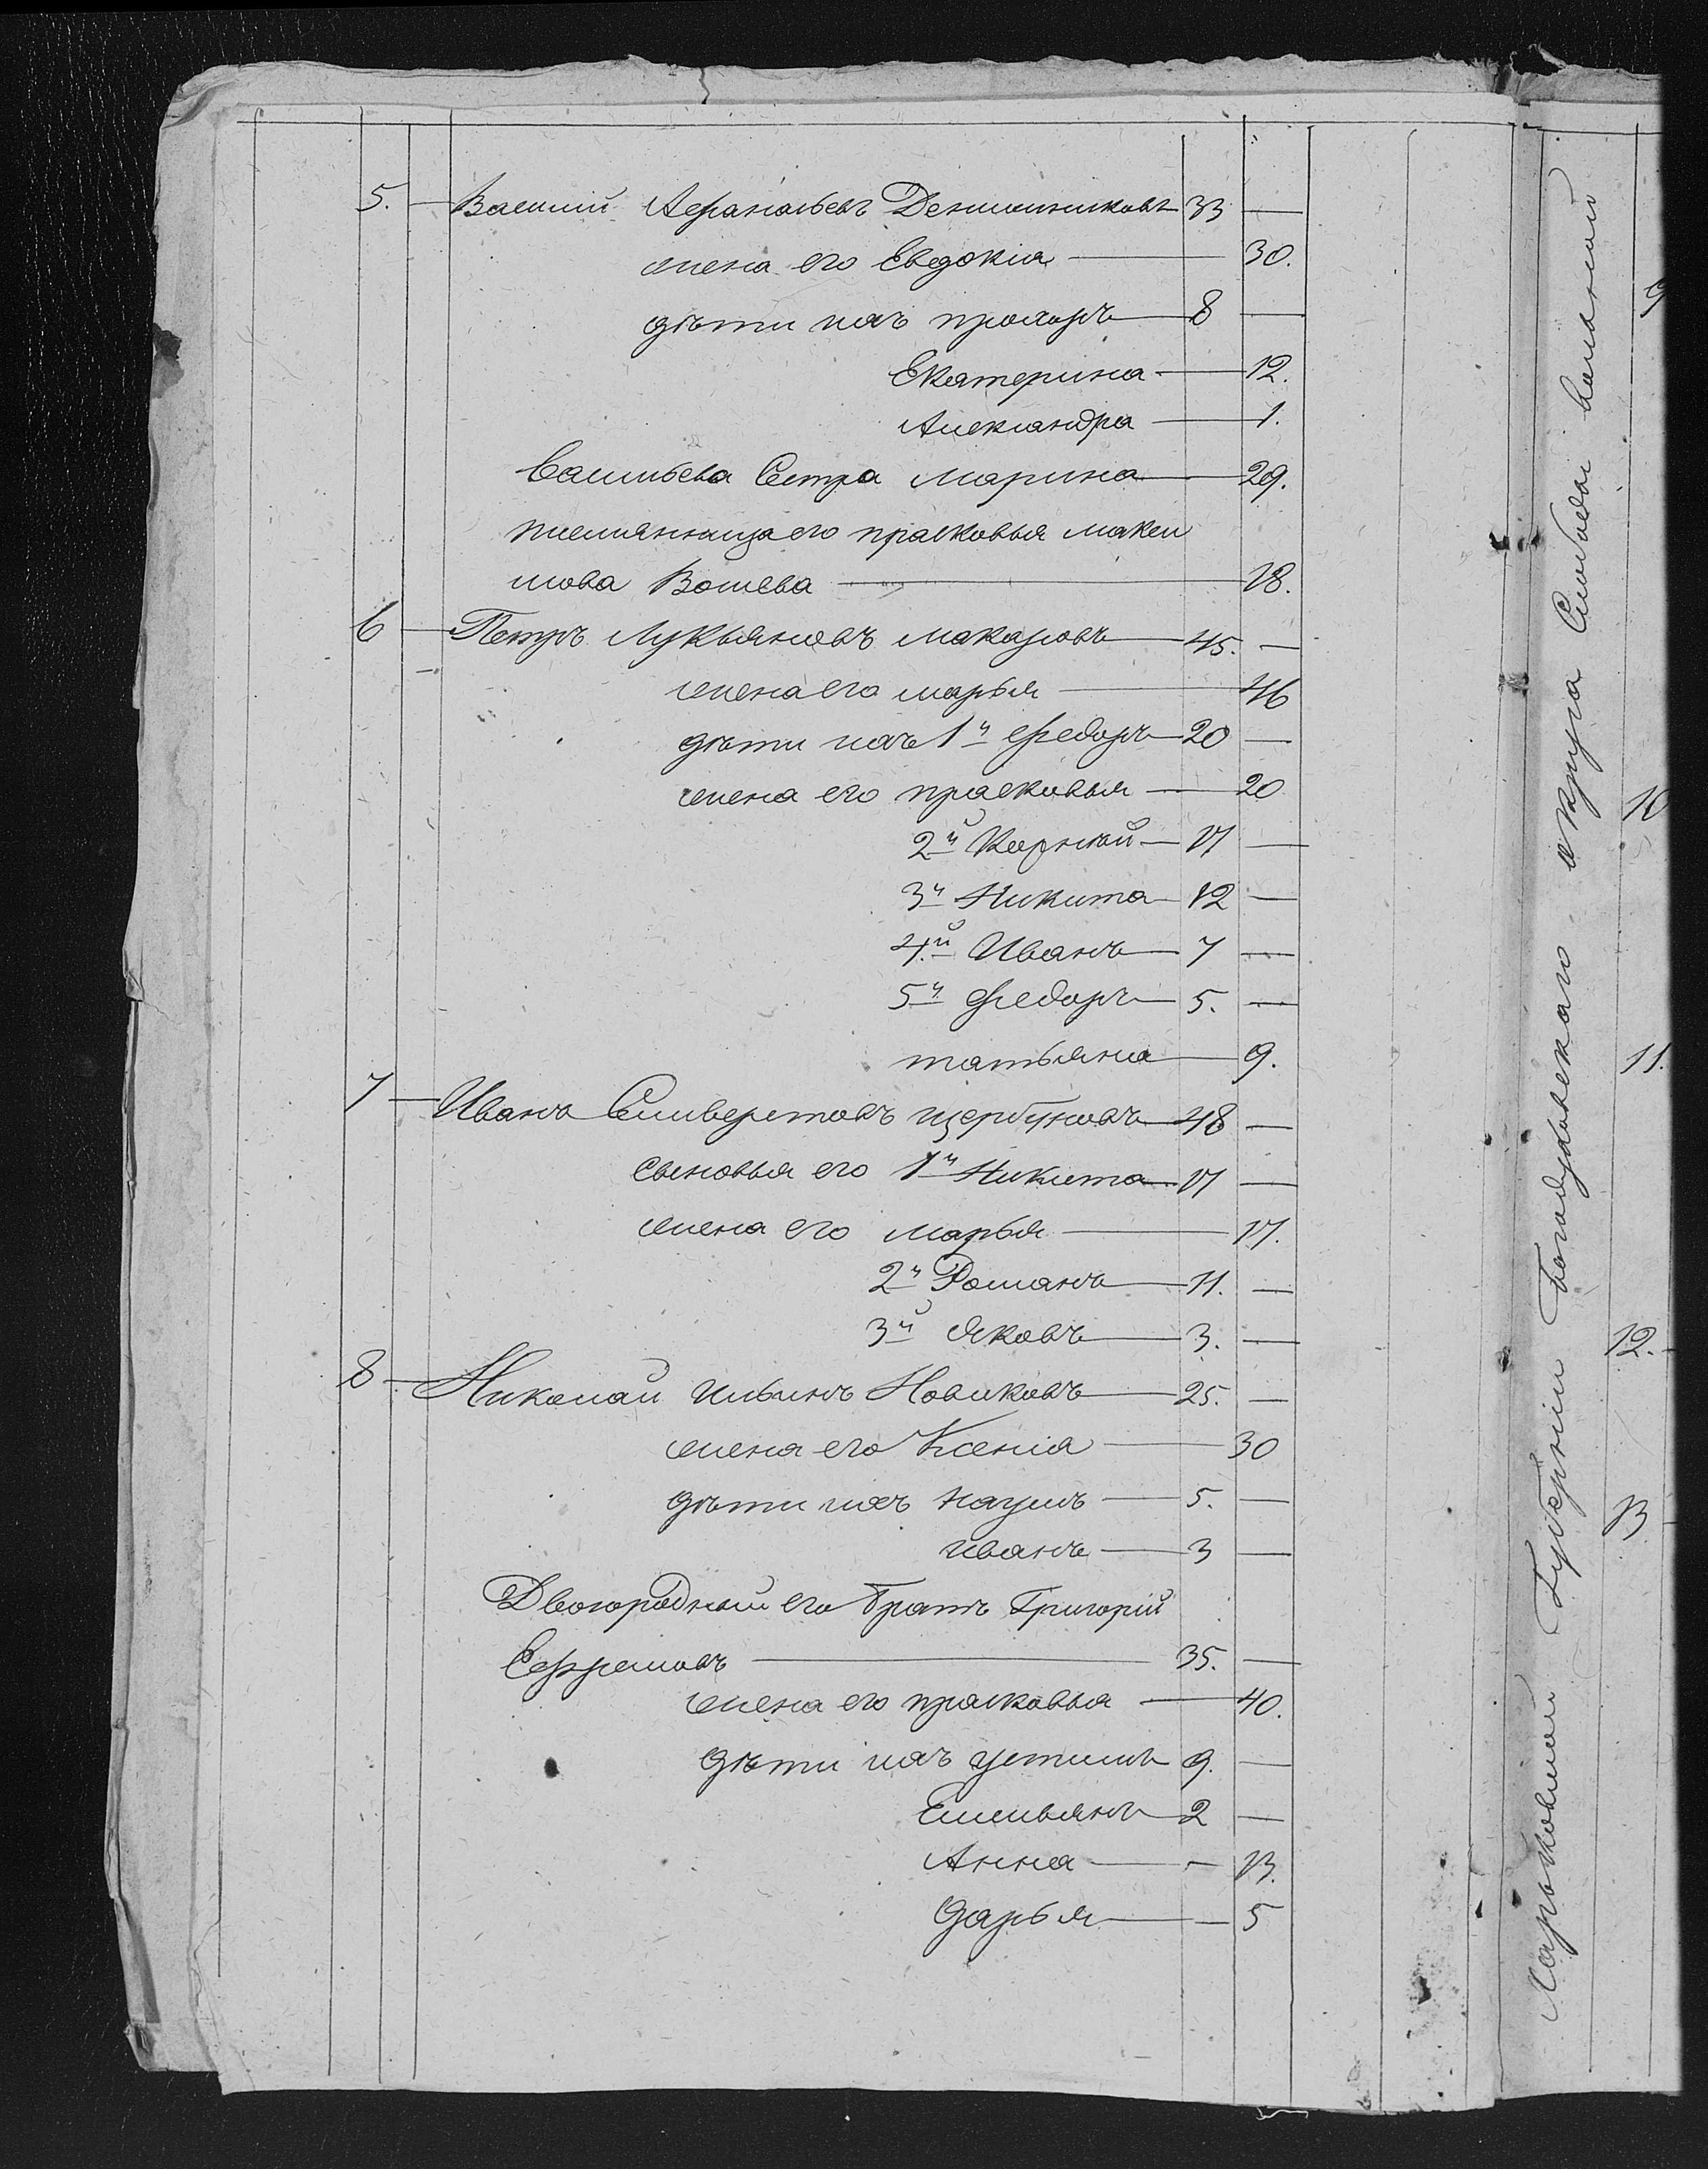 5. — Василий Афанасьевъ Денщиковъ 33 —
жена его Евдокіа — 30.
дѣти ихъ прохоръ — 8 —
Екатерина — 12.
Александра — 1.
Васильева Сестра марина — 29.
племянница его прасковья макси
мова — 18.
6 — Петръ Лукьяновъ макаровъ — 45. —
жена его марья — 46
дѣти ихъ 1й федоръ — 20 —
жена его прасковья — 20
2й Корнѣй — 17 —
3й Никита — 12 —
4.й Иванъ — 7 —
5й федоръ — 5. —
татьяна — 9.
7 — Иванъ Сильверстовъ щербуновъ — 48 —
сыновья его 1й Никита — 17 —
жена его марья — 17.
2й Романъ — 11. —
3й Яковъ — 3. —
8 — Николай ильинъ Новиковъ — 25. —
жена его Ксенія — 30
дѣти ихъ наумъ — 5. —
иванъ — 3 —
Двоюродный его братъ Григорій
Ефремовъ — 35. —
жена его прасковья — 40.
дѣти ихъ устимъ 9. —
Емельянъ — 2 —
Анна — — 13.
дарья — — 5
Харьковской Губерніи Богодуховскаго округа Слободы
9
10
11.
12. —
13 —